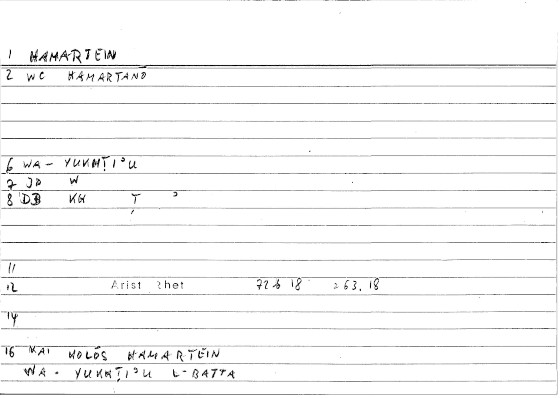 1 HAMARTEIN
2 WC HAMARTANŌ
6 WA- YUKHṬIʾU
7 JD W
8 DB KH Ṭ ʾ
11
12 Arist Rhet 72b 18 263.18
14
16 KAI HOLŌS HAMARTEIN
WA- YUKHṬIʾU L-BATTA